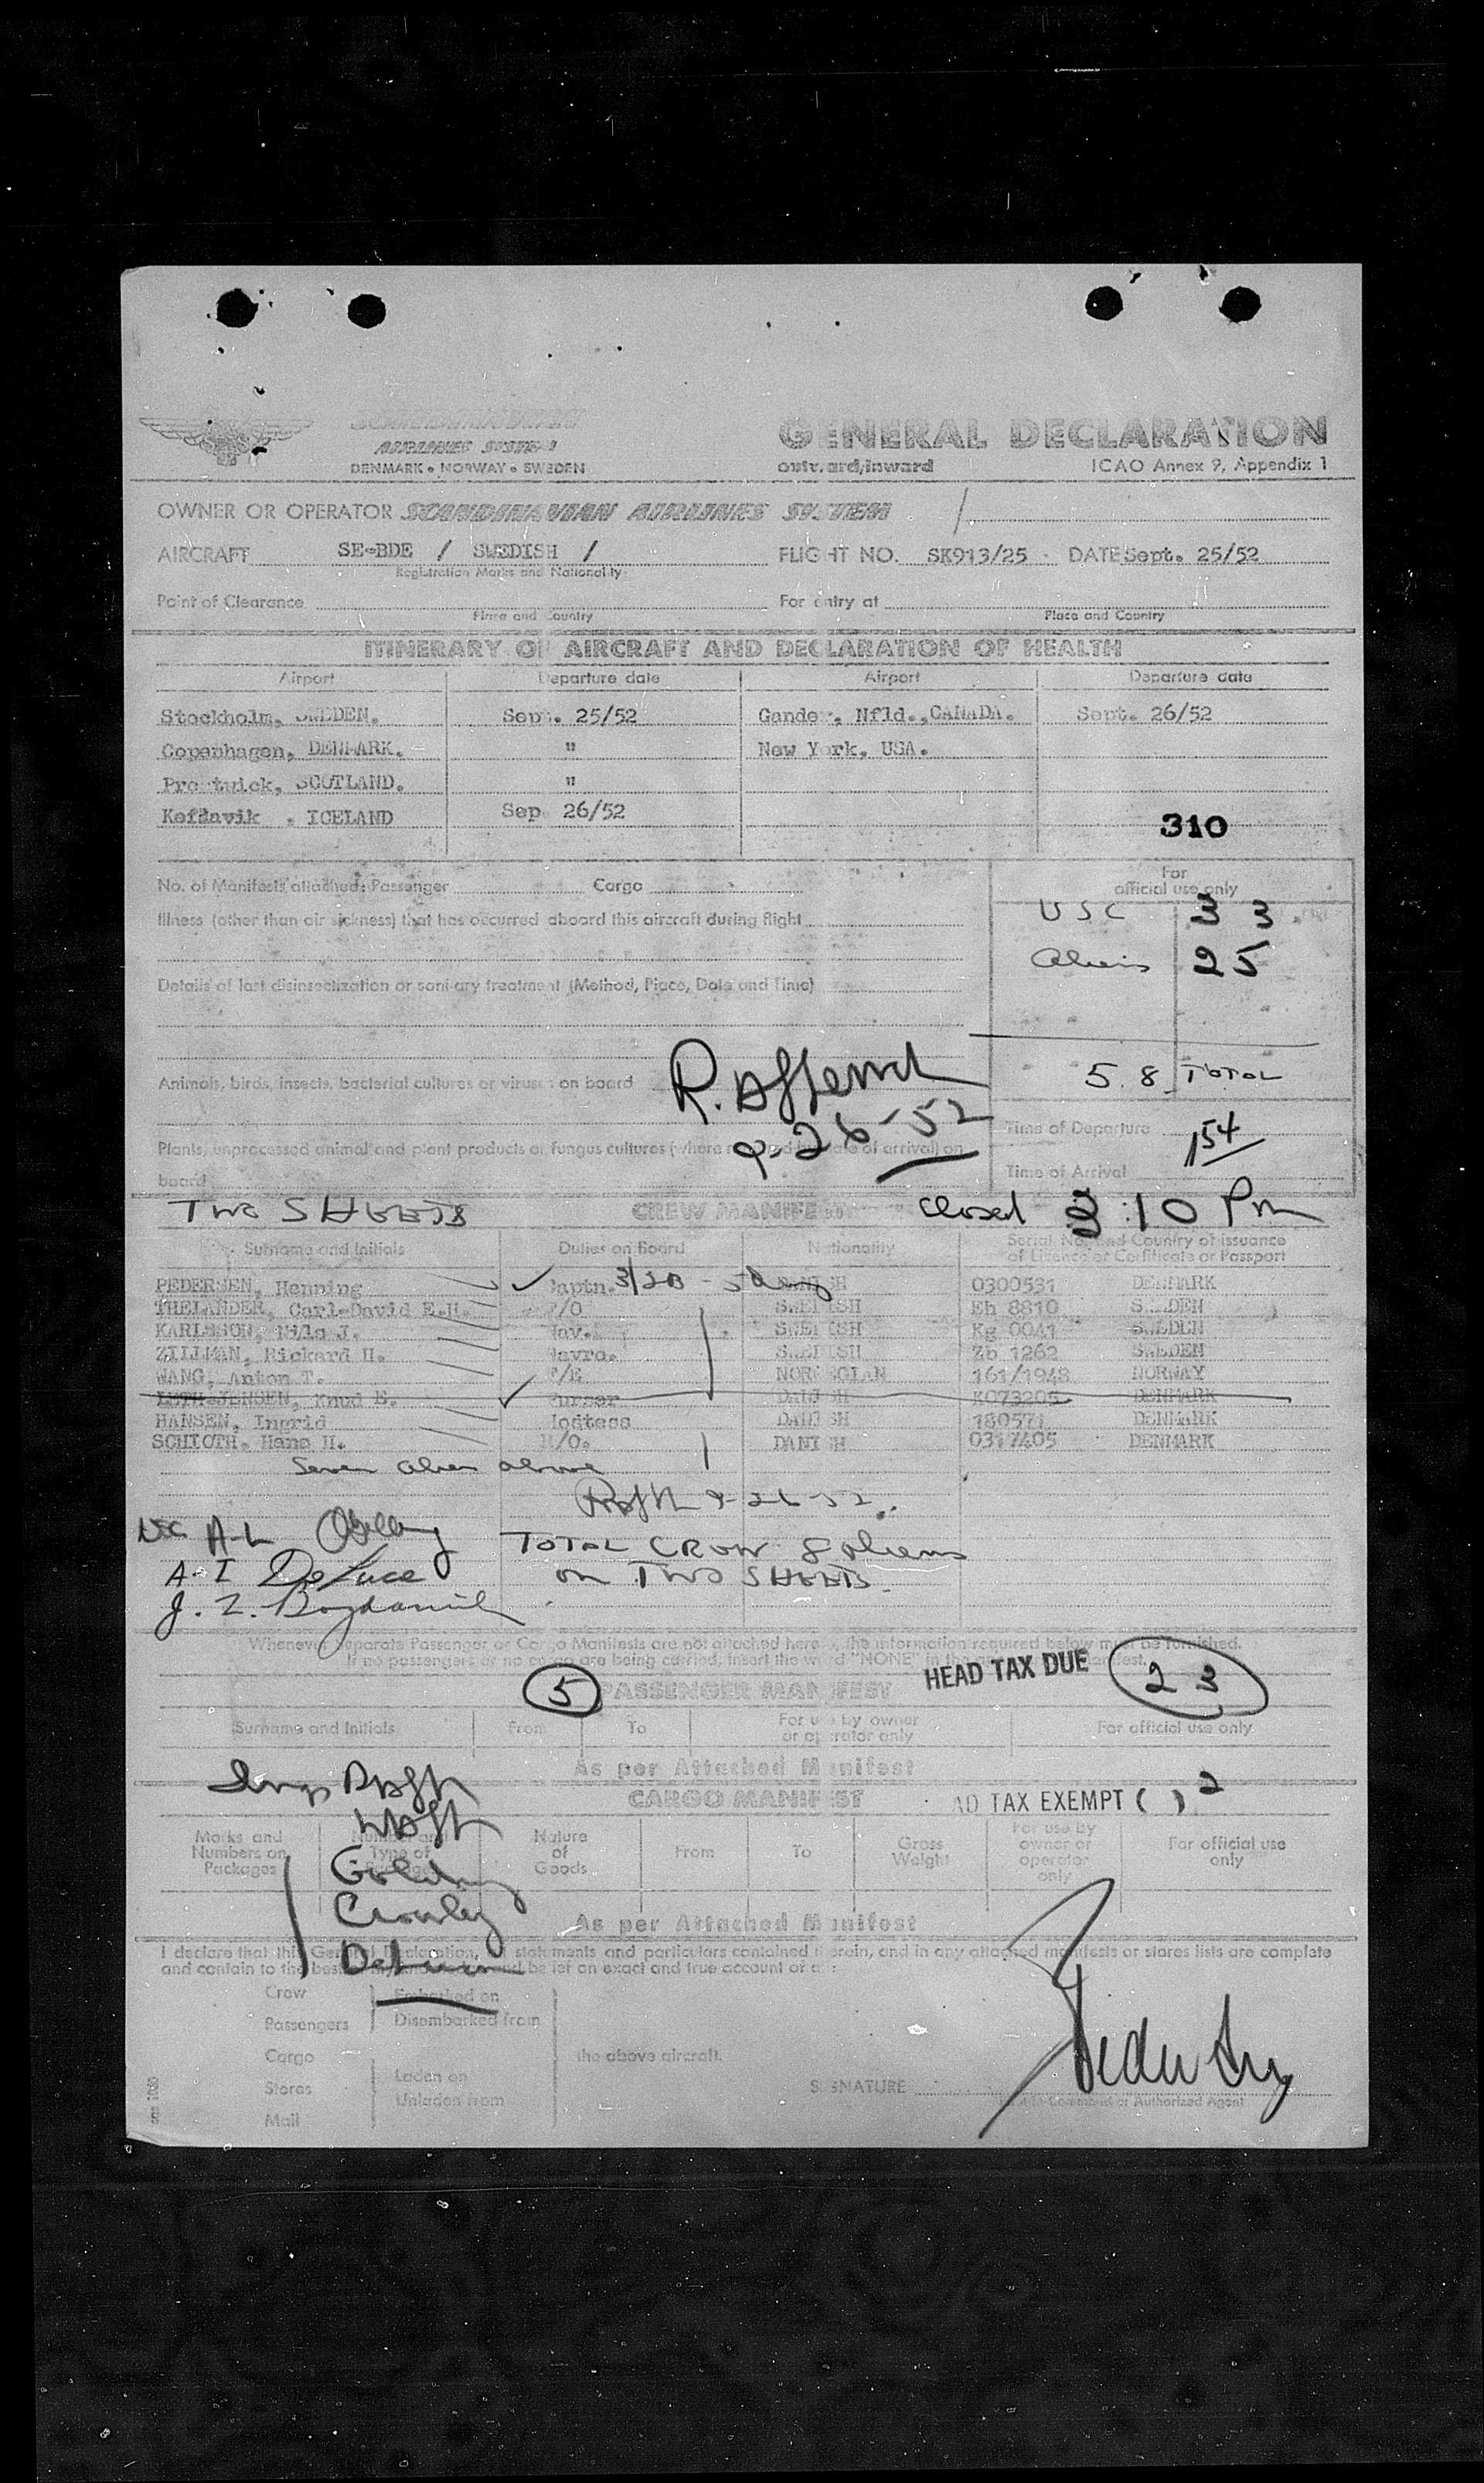 SCANDINAVIAN
AIRLINES SYSTEM
DENMARK • NORWAY • SWEDEN
GENERAL DECLARATION
outward/inward
ICAO Annex 9, Appendix 1
OWNER OR OPERATOR SCANDINAVIAN AIRLINES SYSTEM /
AIRCRAFT SE-BDE / SWEDISH / FLIGHT NO. SK913/25 - DATE Sept. 25/52
Registration Marks and Nationality
Point of Clearance For entry at
Place and Country Place and Country
ITINERARY OF AIRCRAFT AND DECLARATION OF HEALTH
Airport Departure date Airport Departure date
Stockholm, SWEDEN. Sept. 25/52 Gander, Nfld., CANADA. Sept. 26/52
Copenhagen, DENMARK. " New York, USA.
Prestwick, SCOTLAND. "
Keflavik . ICELAND Sep 26/52
310
No. of Manifests attached: Passenger Cargo
For
official use only
Illness (other than air sickness) that has occurred aboard this aircraft during flight
USC 33
Aliens 25
Details of last disinsectization or sanitary treatment (Method, Place, Date and Time)
58 TOTAL
Animals, birds, insects, bacterial cultures or viruses on board
9-26-52
Time of Departure
154
Plants, unprocessed animal and plant products or fungus cultures (where required by state of arrival) on
board
Time of Arrival
TWO SHEETS CREW MANIFEST Closed 3:10 Pm
Surname and Initials Duties on Board Nationality Serial No. and Country of issuance
of Licence or Certificate or Passport
PEDERSEN, Henning Captn. DANISH 0300531 DENMARK
THELANDER, Carl-David E.H. F/O SWEDISH Eh 8810 SWEDEN
KARLSSON, Nils J. Nav. SWEDISH Kg 0041 SWEDEN
ZILLMAN, Rickard H. Navra. SWEDISH Zb 1262 SWEDEN
WANG, Anton T. F/E NORWEGIAN 161/1948 NORWAY
LETH-JENSEN, Knud E. Purser DANISH K073205 DENMARK
HANSEN, Ingrid Hostess DANISH 180571 DENMARK
SCHIOTH, Hans H. R/O. DANISH 0317405 DENMARK
Seven alien above
9-26-52
TOTAL CREW 8 aliens
on TWO SHEETS.
A. I DeLuce
Whenever separate Passenger or Cargo Manifests are not attached hereto, the information required below must be furnished.
If no passengers or no cargo are being carried, insert the word "NONE" in the appropriate manifest.
5 PASSENGER MANIFEST
HEAD TAX DUE 23
Surname and Initials From To For use by owner
or operator only For official use only
As per Attached Manifest
CARGO MANIFEST
AD TAX EXEMPT ( ) 2
Marks and
Numbers on
Packages
Number and
Type of
Packages
Nature
of
Goods
From To Gross
Weight
For use by
owner or
operator
only
For official use
only
Crowley
As per Attached Manifest
I declare that this General Declaration, all statements and particulars contained therein, and in any attached manifests or stores lists are complete
and contain to the best of my knowledge and belief an exact and true account of all:
Crew
Passengers
Cargo
Stores
Mail
Embarked on
Disembarked from
Laden on
Unladen from
the above aircraft.
SIGNATURE
Pilot-in-Command or Authorized Agent